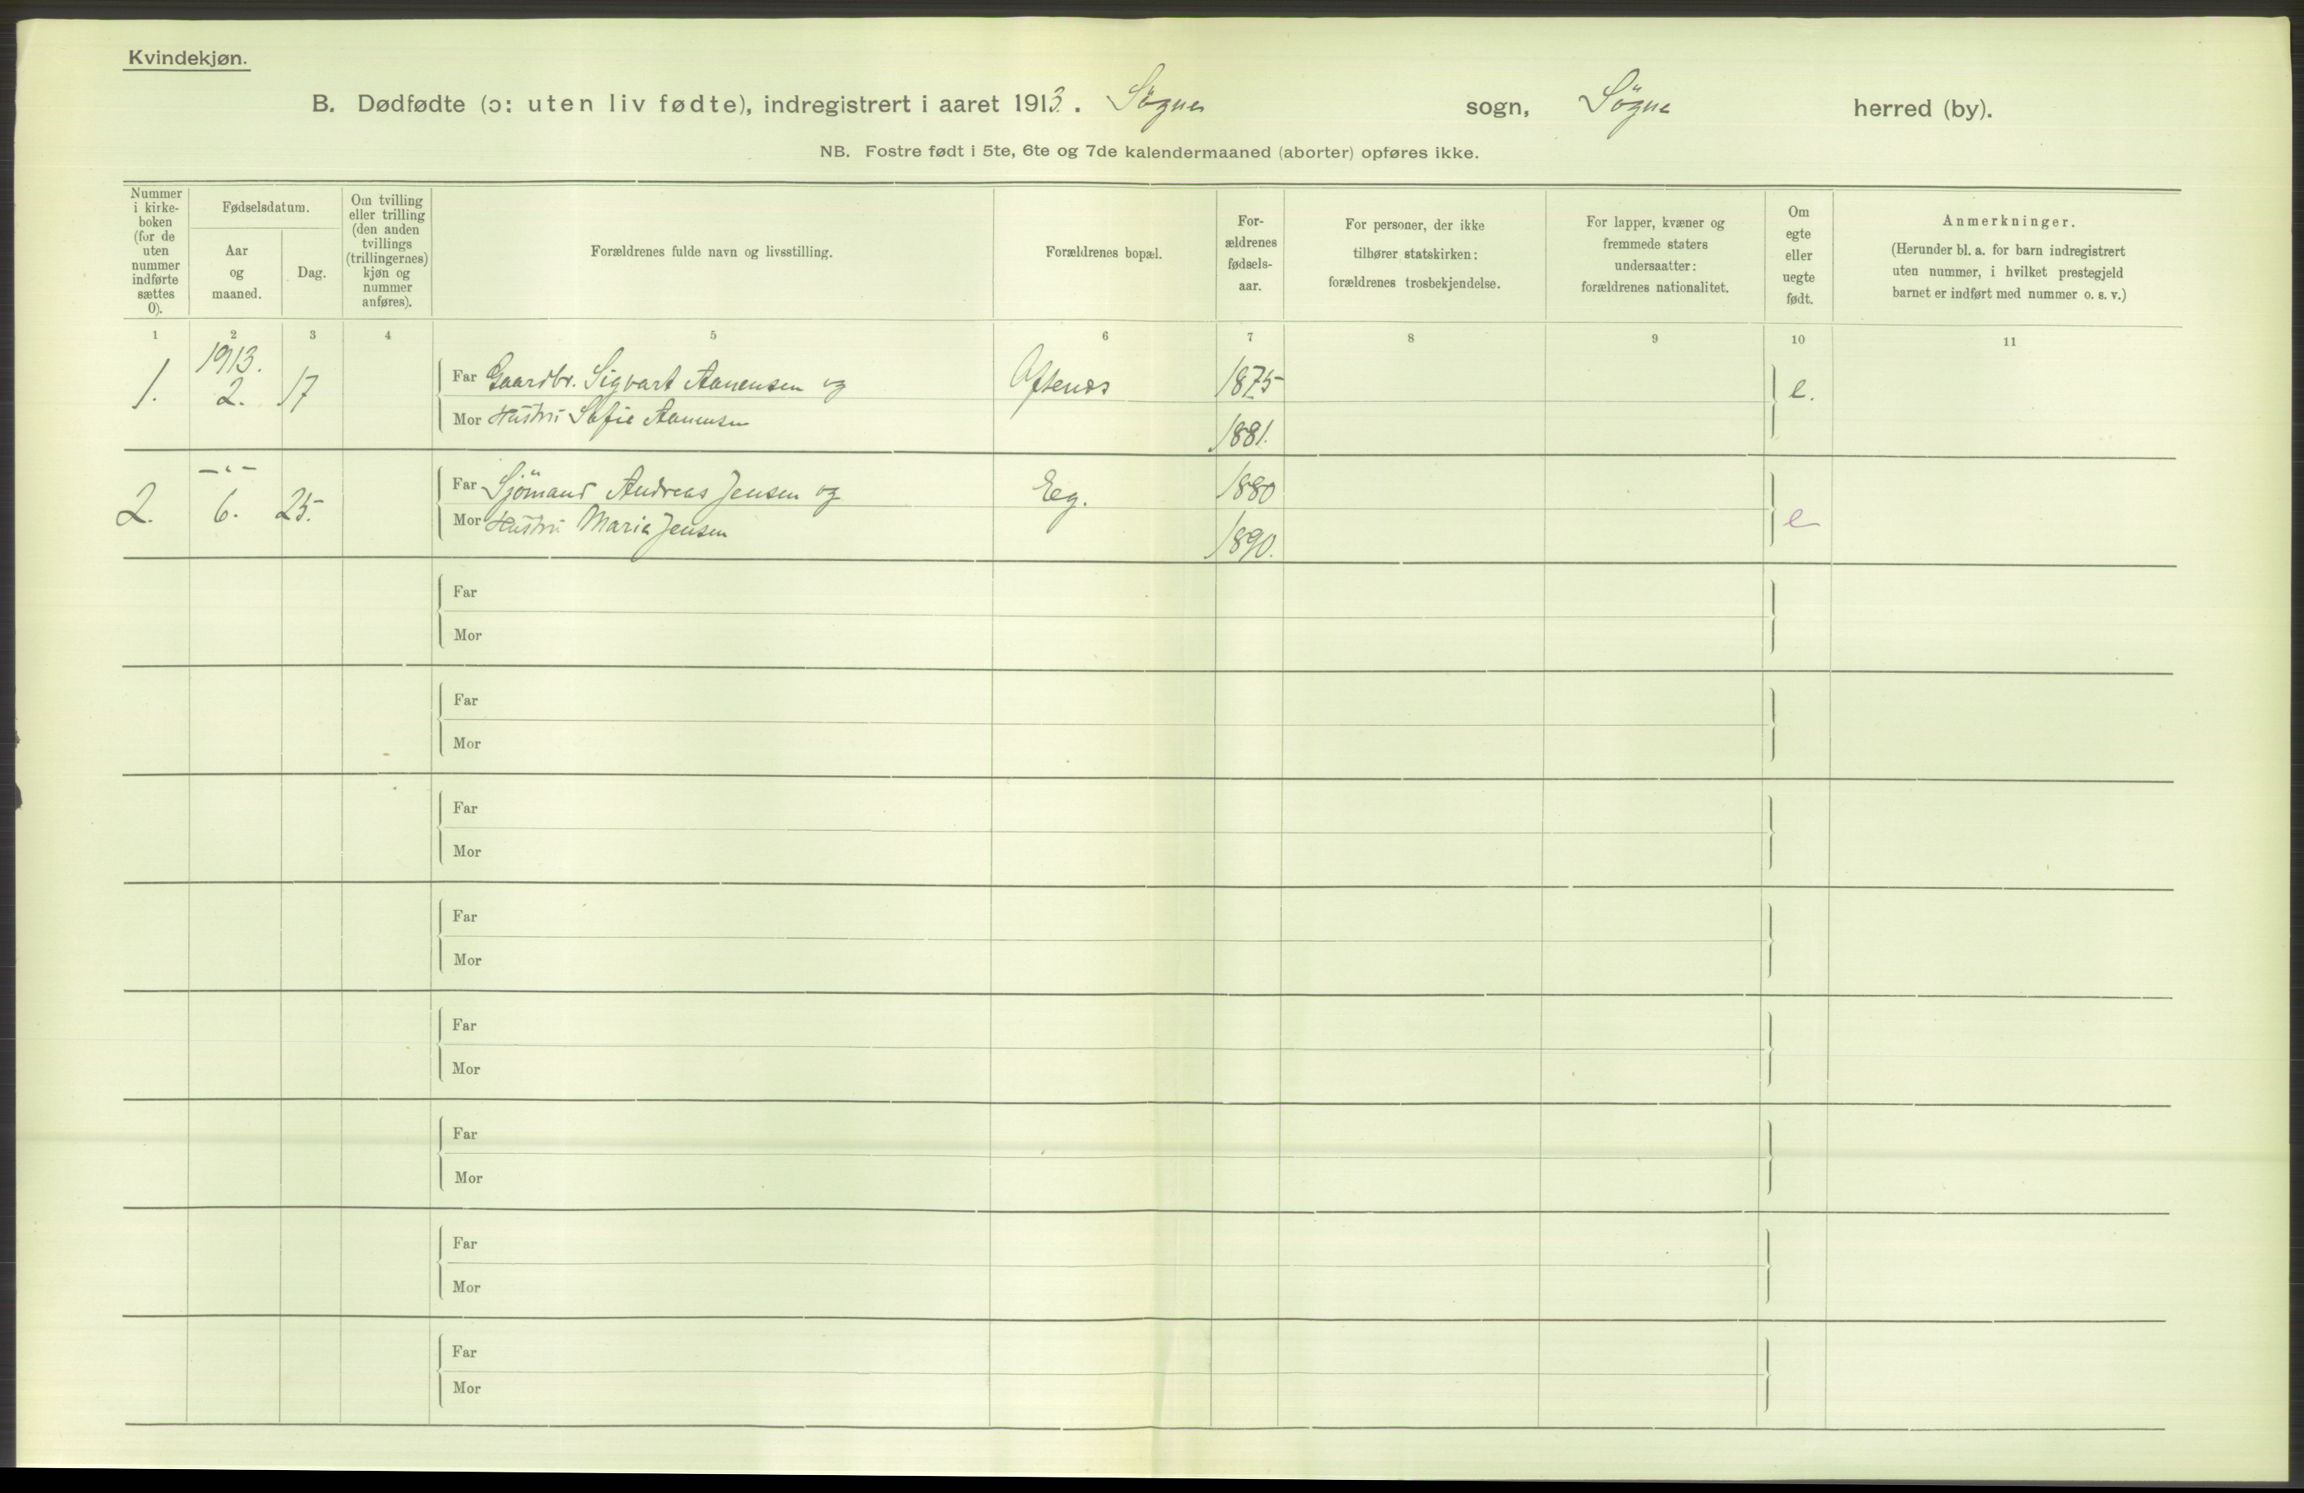 Kvindekjøn.
B. Dødfødte (ɔ: uten liv fødte), indregistrert i aaret 1913. Søgne sogn, Søgne herred (by).
NB. Fostre født i 5te, 6te og 7de kalendermaaned (aborter) opføres ikke.
Nummer
i kirke-
boken
(for de
uten
nummer
indførte
sættes
0).
Fødselsdatum.
Aar
og
maaned.
Dag.
Om tvilling
eller trilling
(den anden
tvillings
(trillingernes)
kjøn og
nummer
anføres).
Forældrenes fulde navn og livsstilling.
Forældrenes bopæl.
For-
ældrenes
fødsels-
aar.
For personer, der ikke
tilhører statskirken:
forældrenes trosbekjendelse.
For lapper, kvæner og
fremmede staters
undersaatter:
forældrenes nationalitet.
Om
egte
eller
uegte
født.
Anmerkninger.
(Herunder bl. a. for barn indregistrert
uten nummer, i hvilket prestegjeld
barnet er indført med nummer o. s. v.)
1 2 3 4 5 6 7 8 9 10 11
1913.
1. 2. 17 Far Gaardbr. Sigvart Aanensen og Oftenes 1875 e.
Mor Hustru Sofie Aanensen 1881.
-"-
2. 6. 25. Far Sjömand Andreas Jensen og Eeg. 1880 e
Mor Hustru Maria Jensen 1890.
Far
Mor
Far
Mor
Far
Mor
Far
Mor
Far
Mor
Far
Mor
Far
Mor
Far
Mor